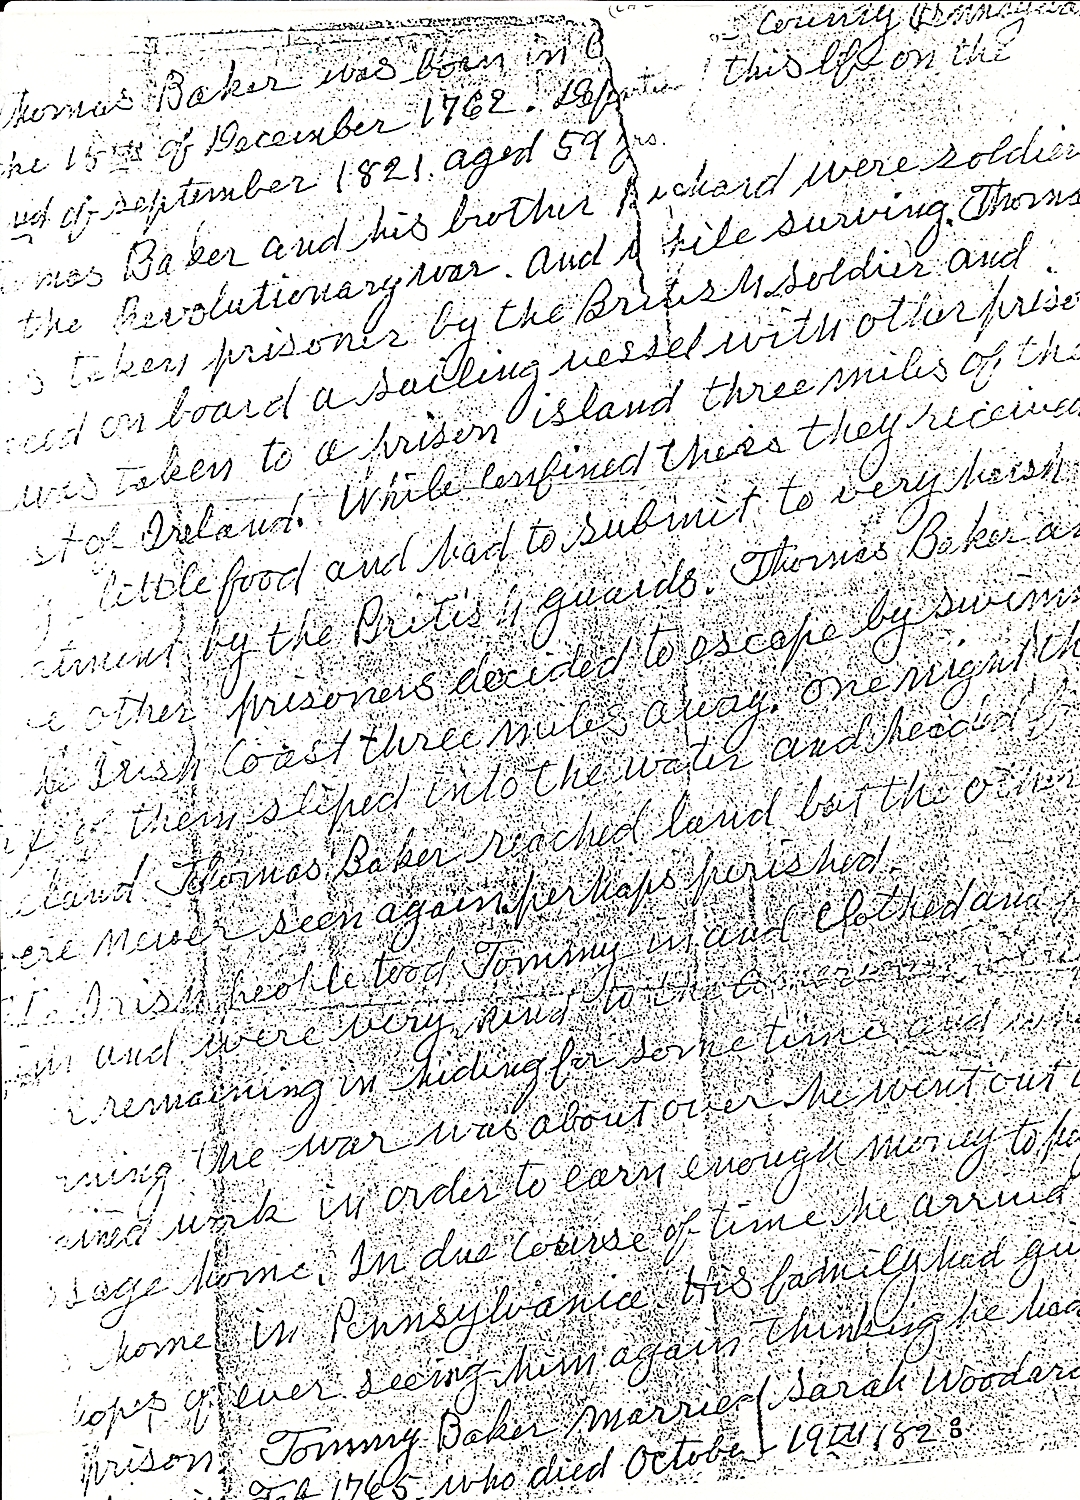 County Pennsylva
homas Baker was born in B
this life on the
he 15th of December 1762. Departed
nd of September 1821. aged 59 yrs.
mas Baker and his brother Richard were soldier
the Revolutionary war. And while surving. Thoma
s taken prisoner by the British soldier and
ced on board a sailing vessel with other priso
was taken to a prison island three miles of the
st of Ireland. While confined there they receive
little food and had to submit to very harsh
atment by the British guards. Thomas Baker an
e other prisoners decided to escape by swimm
he Irish Coast three miles away. One night th
of them sliped into the water and headed f
eland Thomas Baker reached land but the other
ere never seen again perhaps perished.
Irish people tood Tommy in and Clothed and f
im and were very kind to the
r remaining in hiding for some time and
rning the war was about over he went out
ined work in order to earn enough money to pa
ssage home. In due course of time he arrived
home in Pennsylvania. His family had giv
hopes of ever seeing him again thinking he had
prison. Tommy Baker Married Sarah Woodard
Feb 1765. who died October 19th 1828